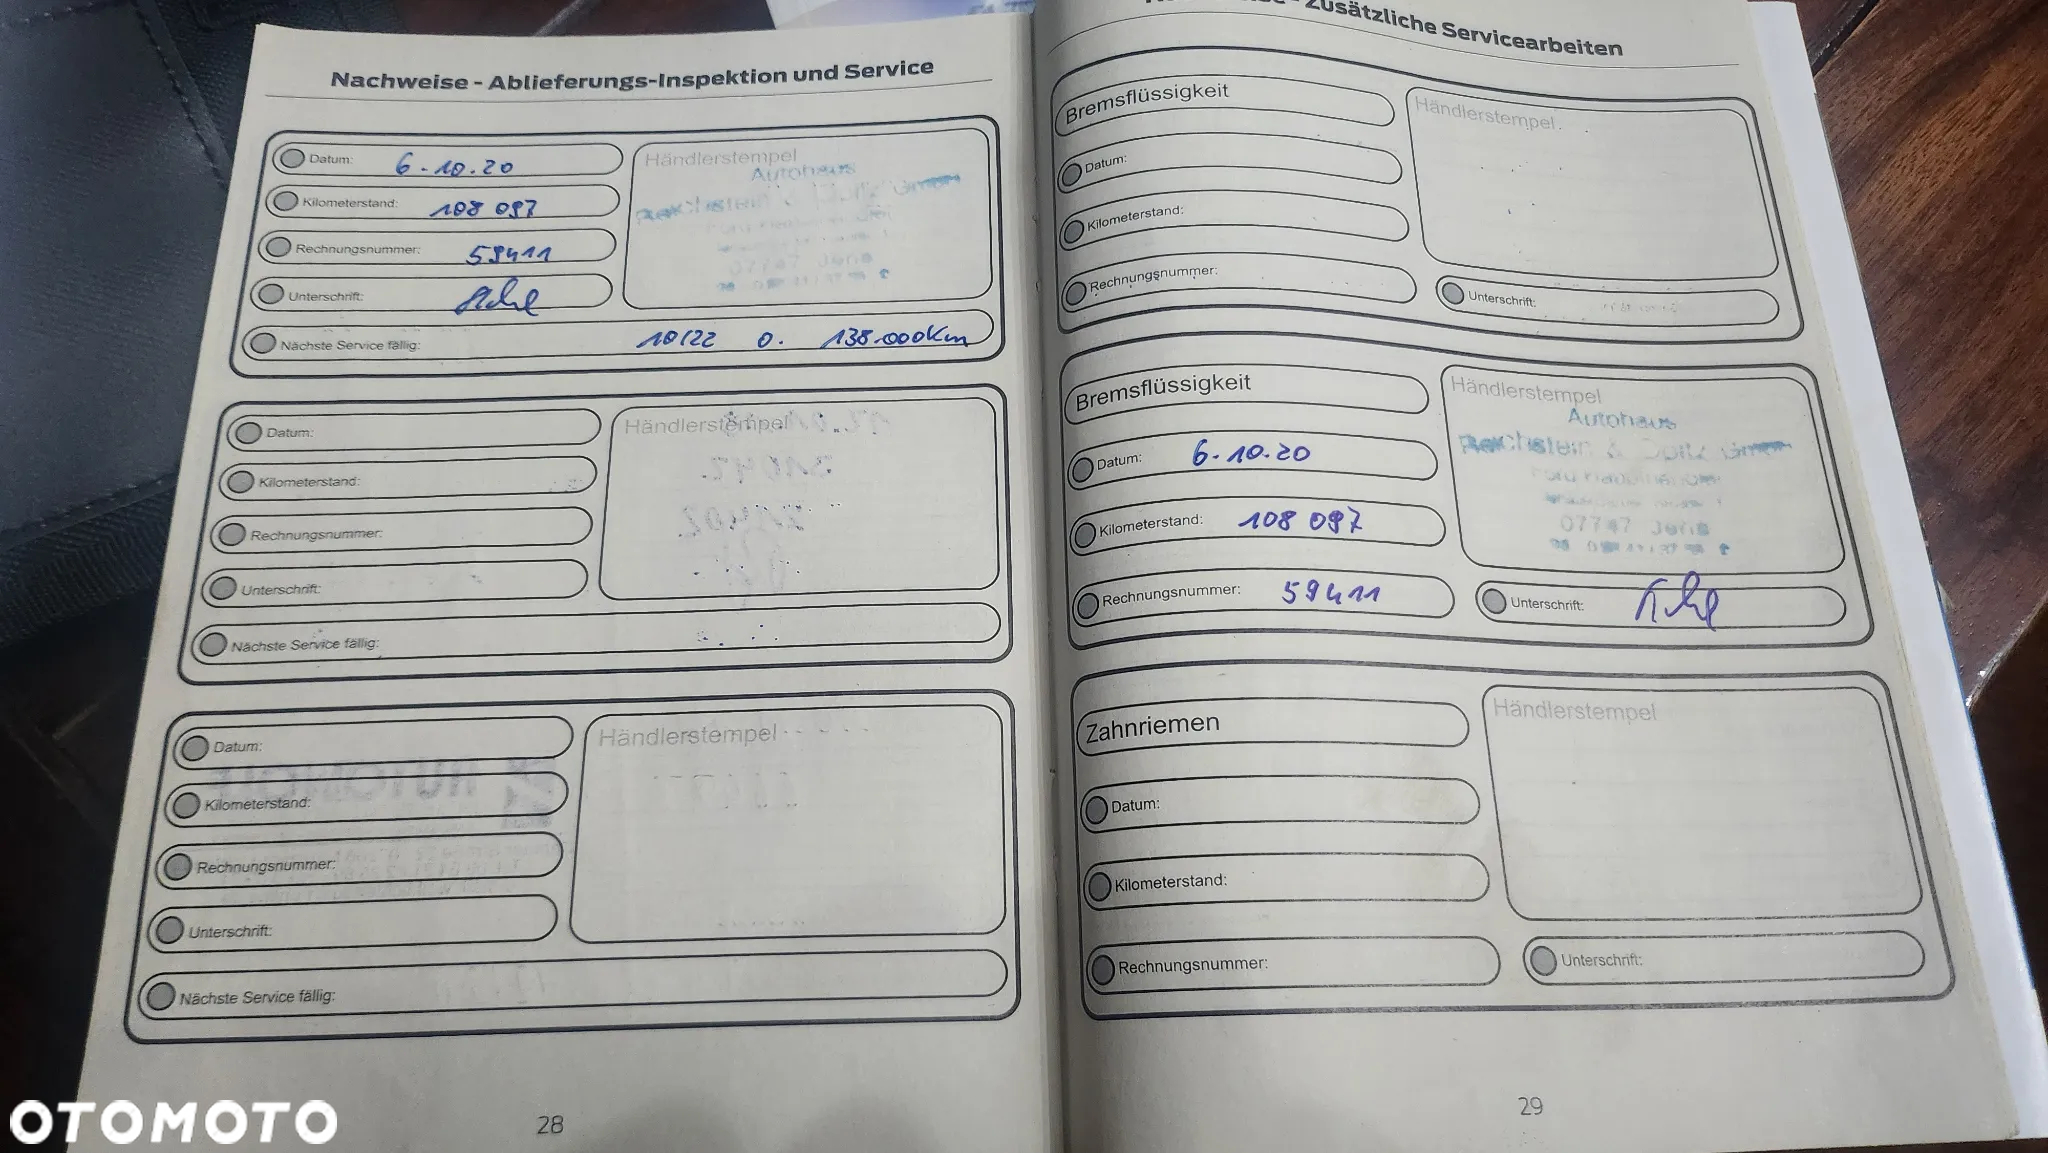 Nachweise - Ablieferungs-Inspektion und Service
Datum: 6.10.20
Kilometerstand: 108 097
Rechnungsnummer: 59411
Unterschrift:
Nächste Service fällig: 10/22 o. 138.000km
Händlerstempel
Autohaus
07747 Jena
Datum:
Kilometerstand:
Rechnungsnummer:
Unterschrift:
Nächste Service fällig:
Händlerstempel
Datum:
Kilometerstand:
Rechnungsnummer:
Unterschrift:
Nächste Service fällig:
Händlerstempel
28
Zusätzliche Servicearbeiten
Bremsflüssigkeit
Datum:
Kilometerstand:
Rechnungsnummer:
Händlerstempel
Unterschrift:
Bremsflüssigkeit
Datum: 6.10.20
Kilometerstand: 108 097
Rechnungsnummer: 59411
Händlerstempel
Autohaus
Reichstein & Opitz GmbH
07747 Jena
Unterschrift:
Zahnriemen
Datum:
Kilometerstand:
Rechnungsnummer:
Händlerstempel
Unterschrift:
29
OTOMOTO